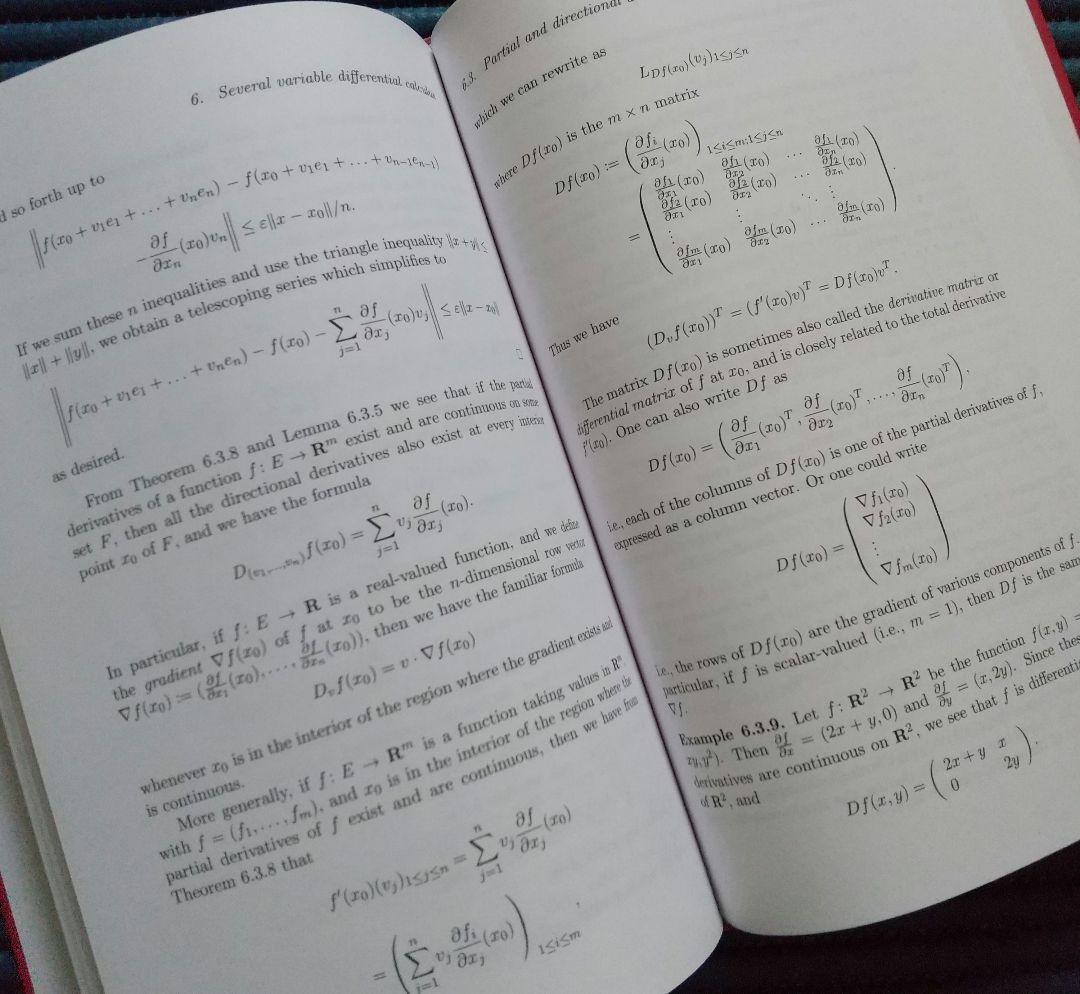 6. Several variable differential calculus
d so forth up to
‖f(x₀ + v₁e₁ + . . . + vₙeₙ) − f(x₀ + v₁e₁ + . . . + vₙ₋₁eₙ₋₁)
− ∂f/∂xₙ (x₀)vₙ‖ ≤ ε‖x − x₀‖/n.
If we sum these n inequalities and use the triangle inequality ‖x + y‖ ≤
‖x‖ + ‖y‖, we obtain a telescoping series which simplifies to
‖f(x₀ + v₁e₁ + . . . + vₙeₙ) − f(x₀) − ∑_{j=1}^{n} ∂f/∂xⱼ (x₀)vⱼ‖ ≤ ε‖x − x₀‖
as desired. □
From Theorem 6.3.8 and Lemma 6.3.5 we see that if the partial
derivatives of a function f: E → Rᵐ exist and are continuous on some
set F, then all the directional derivatives also exist at every interior
point x₀ of F, and we have the formula
D_{(v₁,...,vₙ)} f(x₀) = ∑_{j=1}^{n} vⱼ ∂f/∂xⱼ (x₀).
In particular, if f: E → R is a real-valued function, and we define
the gradient ∇f(x₀) of f at x₀ to be the n-dimensional row vector
∇f(x₀) := (∂f/∂x₁ (x₀), . . . , ∂f/∂xₙ (x₀)), then we have the familiar formula
Dᵥf(x₀) = v · ∇f(x₀)
whenever x₀ is in the interior of the region where the gradient exists and
is continuous.
More generally, if f: E → Rᵐ is a function taking values in Rᵐ,
with f = (f₁, . . . , fₘ), and x₀ is in the interior of the region where the
partial derivatives of f exist and are continuous, then we have from
Theorem 6.3.8 that
f′(x₀)(vⱼ)_{1≤j≤n} = ∑_{j=1}^{n} vⱼ ∂f/∂xⱼ (x₀)
= (∑_{j=1}^{n} vⱼ ∂fᵢ/∂xⱼ (x₀))_{1≤i≤m}
6.3. Partial and directional
which we can rewrite as
L_{Df(x₀)}(vⱼ)_{1≤j≤n}
where Df(x₀) is the m × n matrix
Df(x₀) := (∂fᵢ/∂xⱼ (x₀))_{1≤i≤m;1≤j≤n}
= ( ∂f₁/∂x₁ (x₀) ∂f₁/∂x₂ (x₀) . . . ∂f₁/∂xₙ (x₀)
∂f₂/∂x₁ (x₀) ∂f₂/∂x₂ (x₀) . . . ∂f₂/∂xₙ (x₀)
⋮ ⋮ ⋱ ⋮
∂fₘ/∂x₁ (x₀) ∂fₘ/∂x₂ (x₀) . . . ∂fₘ/∂xₙ (x₀) ).
Thus we have
(Dᵥf(x₀))ᵀ = (f′(x₀)v)ᵀ = Df(x₀)vᵀ.
The matrix Df(x₀) is sometimes also called the derivative matrix or
differential matrix of f at x₀, and is closely related to the total derivative
f′(x₀). One can also write Df as
Df(x₀) = (∂f/∂x₁ (x₀)ᵀ, ∂f/∂x₂ (x₀)ᵀ, . . . , ∂f/∂xₙ (x₀)ᵀ),
i.e., each of the columns of Df(x₀) is one of the partial derivatives of f,
expressed as a column vector. Or one could write
Df(x₀) = ( ∇f₁(x₀)
∇f₂(x₀)
⋮
∇fₘ(x₀) )
i.e., the rows of Df(x₀) are the gradient of various components of f.
particular, if f is scalar-valued (i.e., m = 1), then Df is the same
∇f.
Example 6.3.9. Let f: R² → R² be the function f(x, y) =
xy, y²). Then ∂f/∂x = (2x + y, 0) and ∂f/∂y = (x, 2y). Since these
derivatives are continuous on R², we see that f is differenti
of R², and
Df(x, y) = ( 2x + y x
0 2y ).